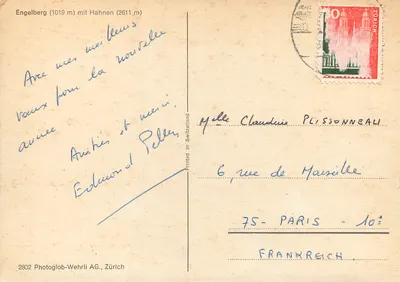 Engelberg (1019 m) mit Hahnen (2611 m)
Avec mes meilleurs
vœux pour la nouvelle
année
Amitiés et merci,
Edmond
Printed in Switzerland
2802 Photoglob-Wehrli AG., Zürich
30
Mlle Claudine PLISSONNEAU
6, rue de Marseille
75 - PARIS - 10e
FRANKREICH